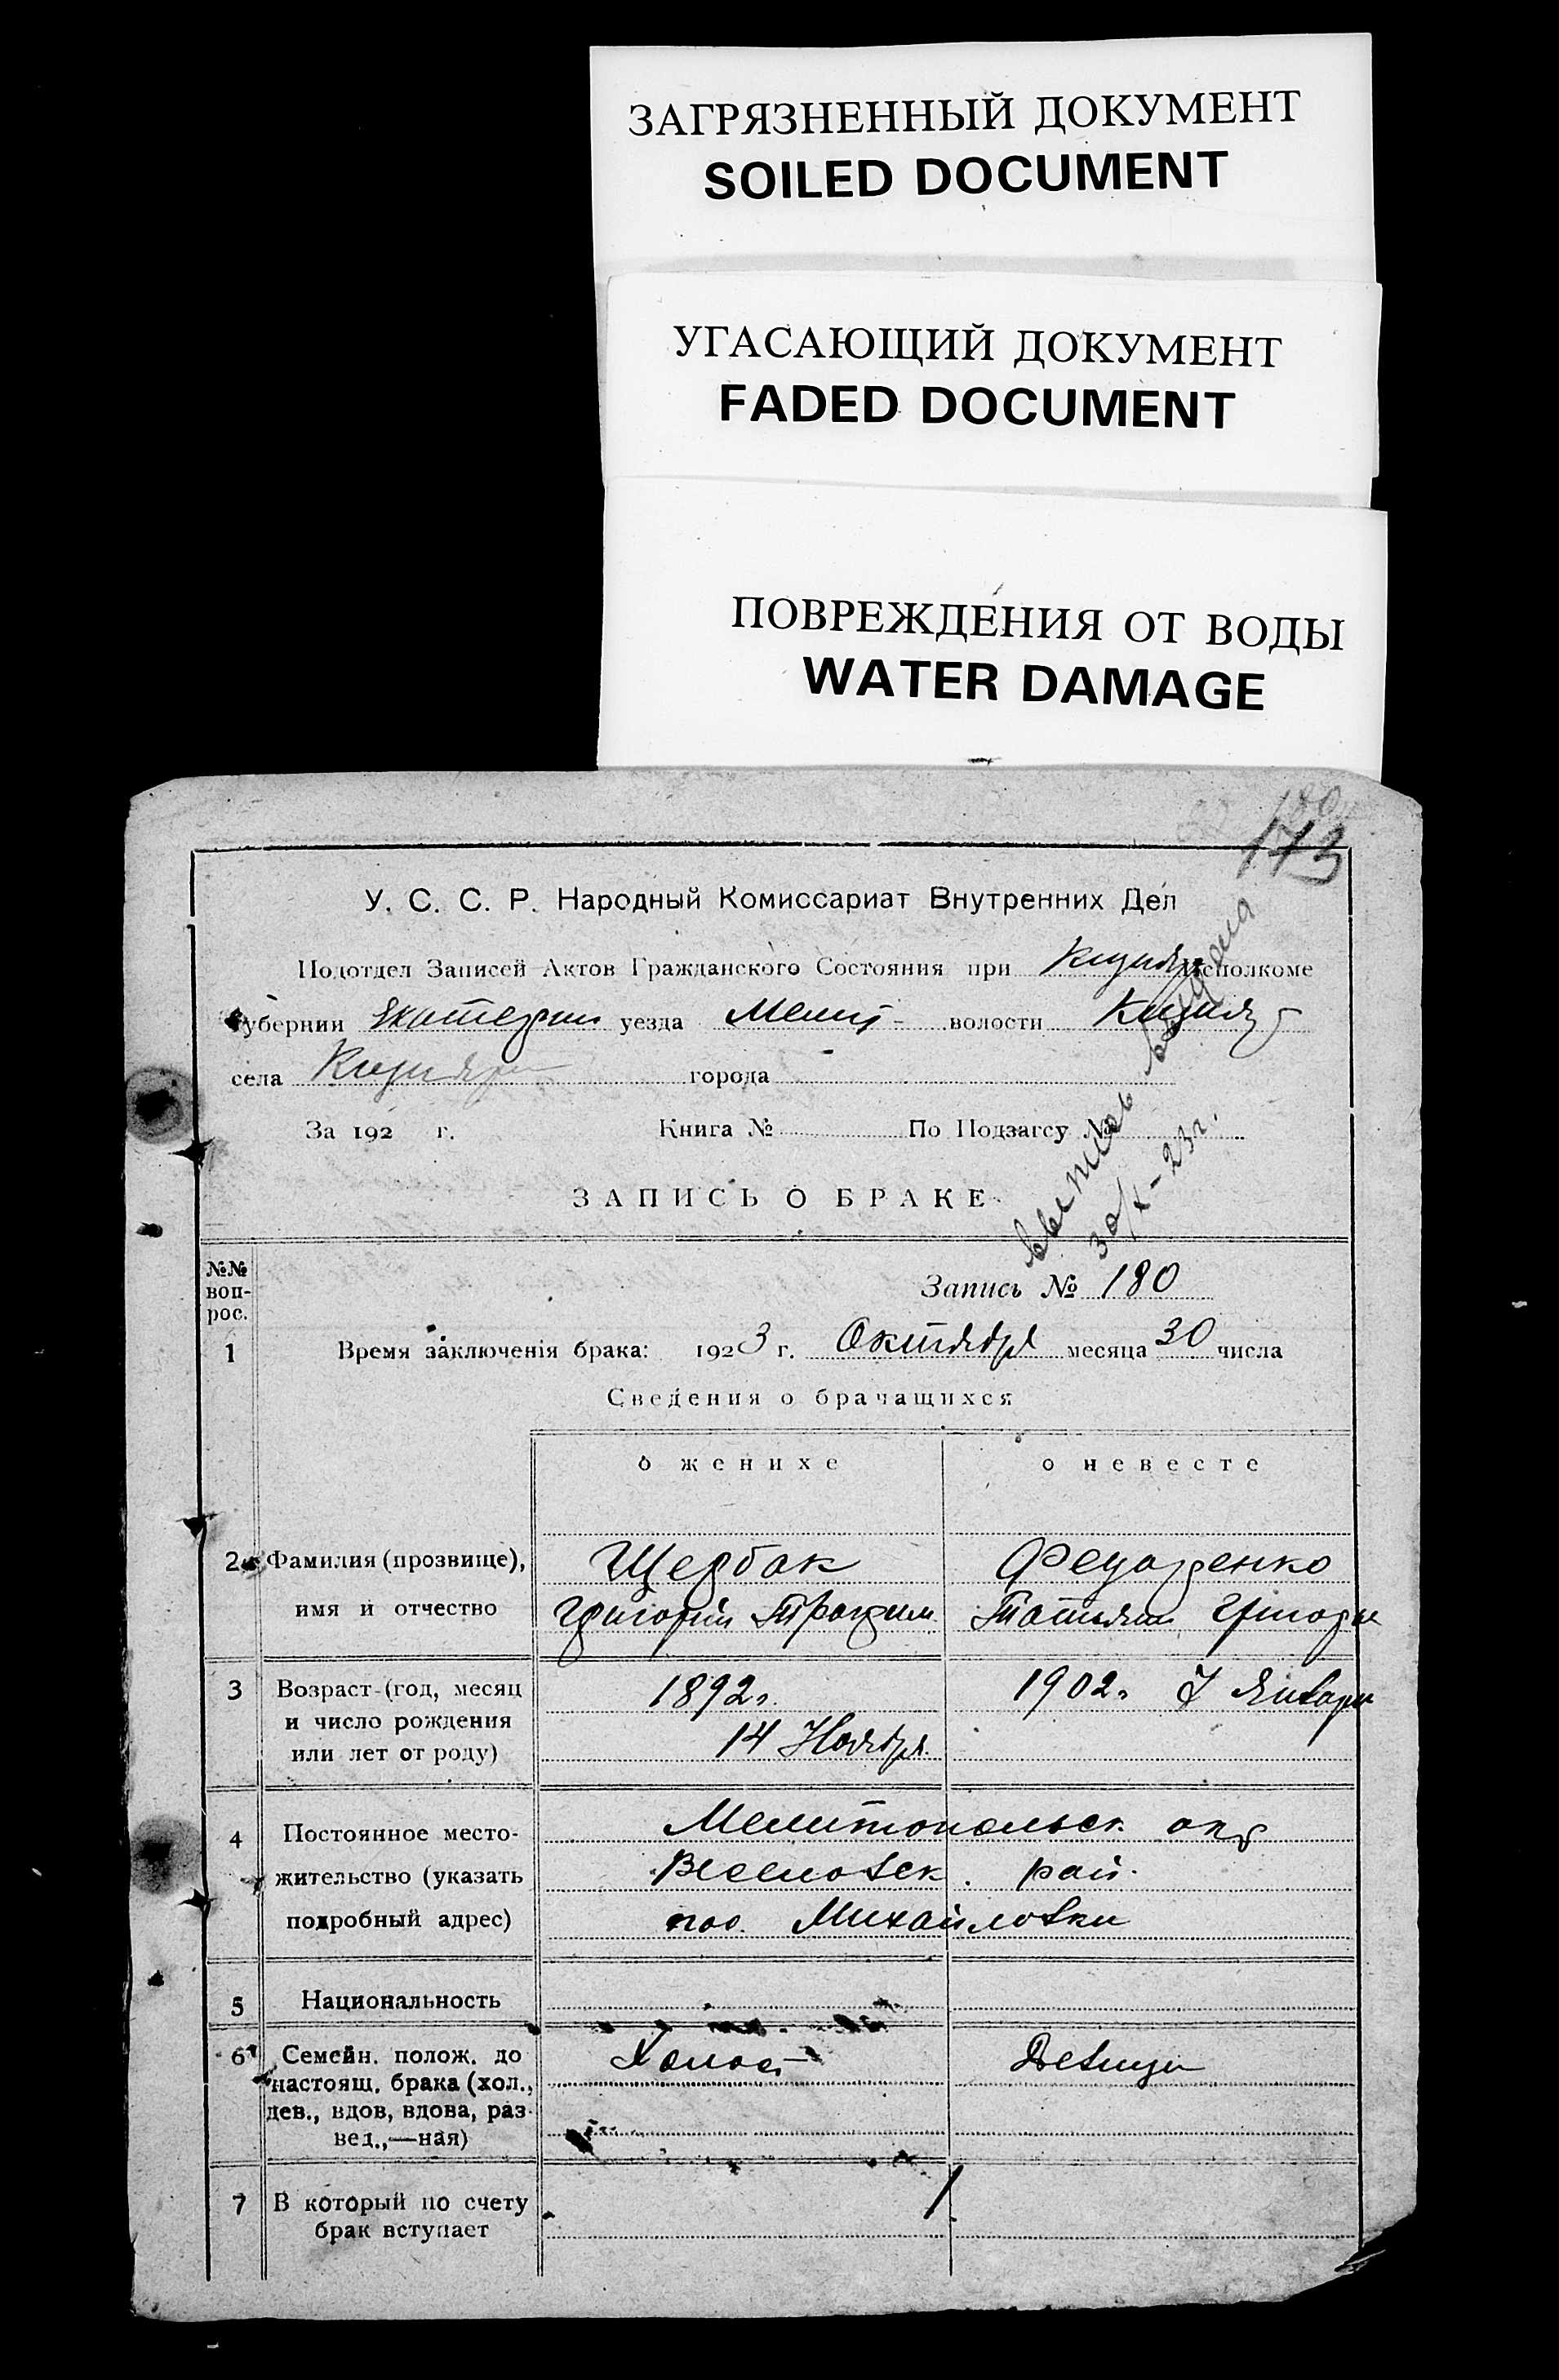 ЗАГРЯЗНЕННЫЙ ДОКУМЕНТ
SOILED DOCUMENT
УГАСАЮЩИЙ ДОКУМЕНТ
FADED DOCUMENT
ПОВРЕЖДЕНИЯ ОТ ВОДЫ
WATER DAMAGE
173
У. С. С. Р. Народный Комиссариат Внутренних Дел
Подотдел Записей Актов Гражданского Состояния при Кизияр исполкоме
Губернии Екатерин уезда Мелит- волости Кизияр
села Кизияр города
За 192 г. Книга № По Подзагсу №
выпись выдана
30/X-23г.
ЗАПИСЬ О БРАКЕ
№№ воп-рос.
Запись № 180
1 Время заключенія брака: 1923 г. Октября месяца 30 числа
Сведения о брачащихся
о женихе о невесте
2 Фамилия (прозвище), Щербак
имя и отчество Григорий Трофим Татьяна Григорь
3 Возраст (год, месяц 1892г. 1902г. 7 Января
и число рождения
или лет от роду) 14 Ноября
4 Постоянное место- Мелитопольск окр
жительство (указать Веселовск. рай.
подробный адрес) пос. Михайловки
5 Национальность
6 Семейн. полож. до Холост Девица
настоящ. брака (хол.,
дев., вдов, вдова, раз-
вед.,—ная)
7 В который по счету 1
брак вступает